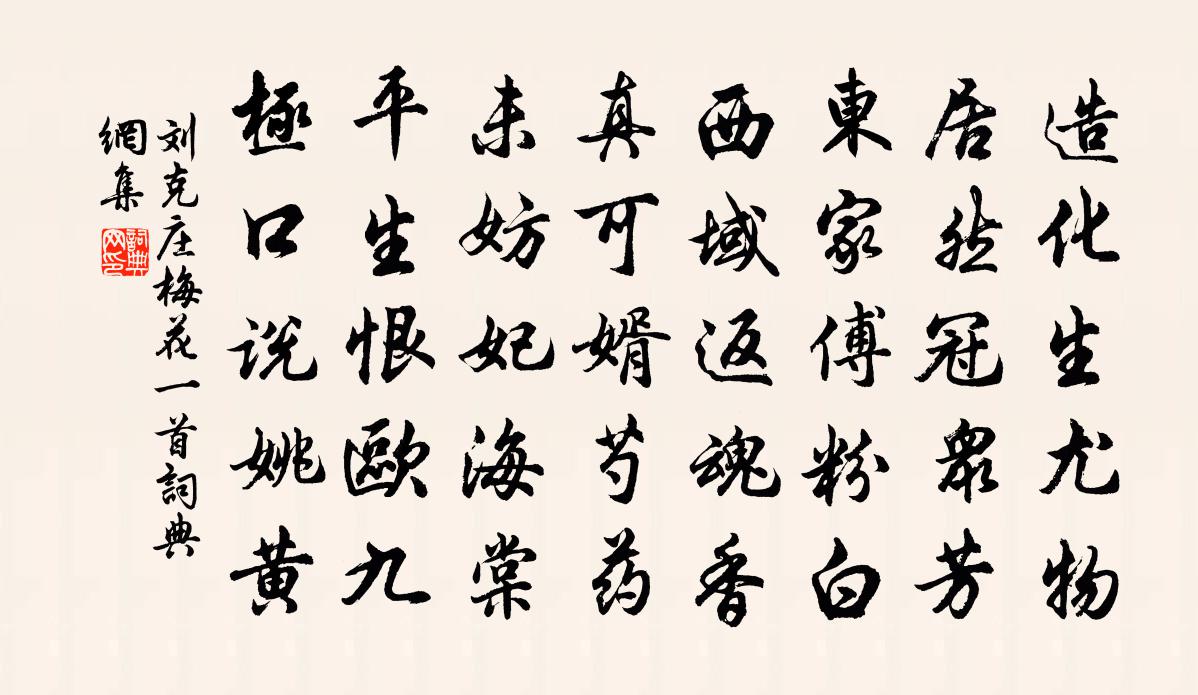 造化生尤物
居然冠眾芳
東家傅粉白
西域返魂香
真可婿芍药
未妨妃海棠
平生恨歐九
極口说姚黄
刘克庄梅花一首詞典
網集
詞典
网印